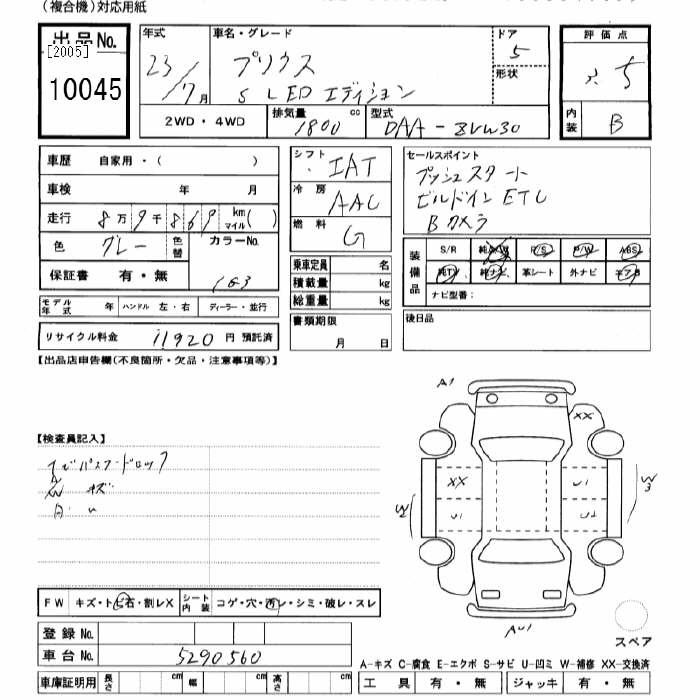 (複合機)対応用紙
出品No.
[2005]
10045
年式
23/7月
車名・グレード
プリウス
S LEDエディション
ドア
5
形状
評価点
5
内装
B
2WD・4WD
排気量
1800 cc
型式
DAA-ZVW30
車歴 自家用・( )
車検 年 月
走行 8万9千869 km マイル( )
色 グレー 色替 カラーNo.
1G3
保証書 有・無
モデル年式 年 ハンドル 左・右 ディーラー・並行
リサイクル料金 11920 円 預託済
シフト
IAT
冷房
AAC
燃料
G
乗車定員 名
積載量 kg
総重量 kg
書類期限
月 日
セールスポイント
プッシュスタート
ビルドインETC
Bカメラ
装備品
S/R 純AW P/S P/W ABS
純TV 純ナビ 革シート 外ナビ エアB
ナビ型番:
後日品
【出品店申告欄(不良箇所・欠品・注意事項等)】
【検査員記入】
FW キズ・トビ石・割レX シート内装 コゲ・穴・汚レ・シミ・破レ・スレ
登録No.
車台No. 5290560
車庫証明用 長さ cm 幅 cm 高さ cm
A1
XX
XX
U1
U1
U2
W2
W3
AU1
スペア
A-キズ C-腐食 E-エクボ S-サビ U-凹ミ W-補修 XX-交換済
工具 有・無 ジャッキ 有・無